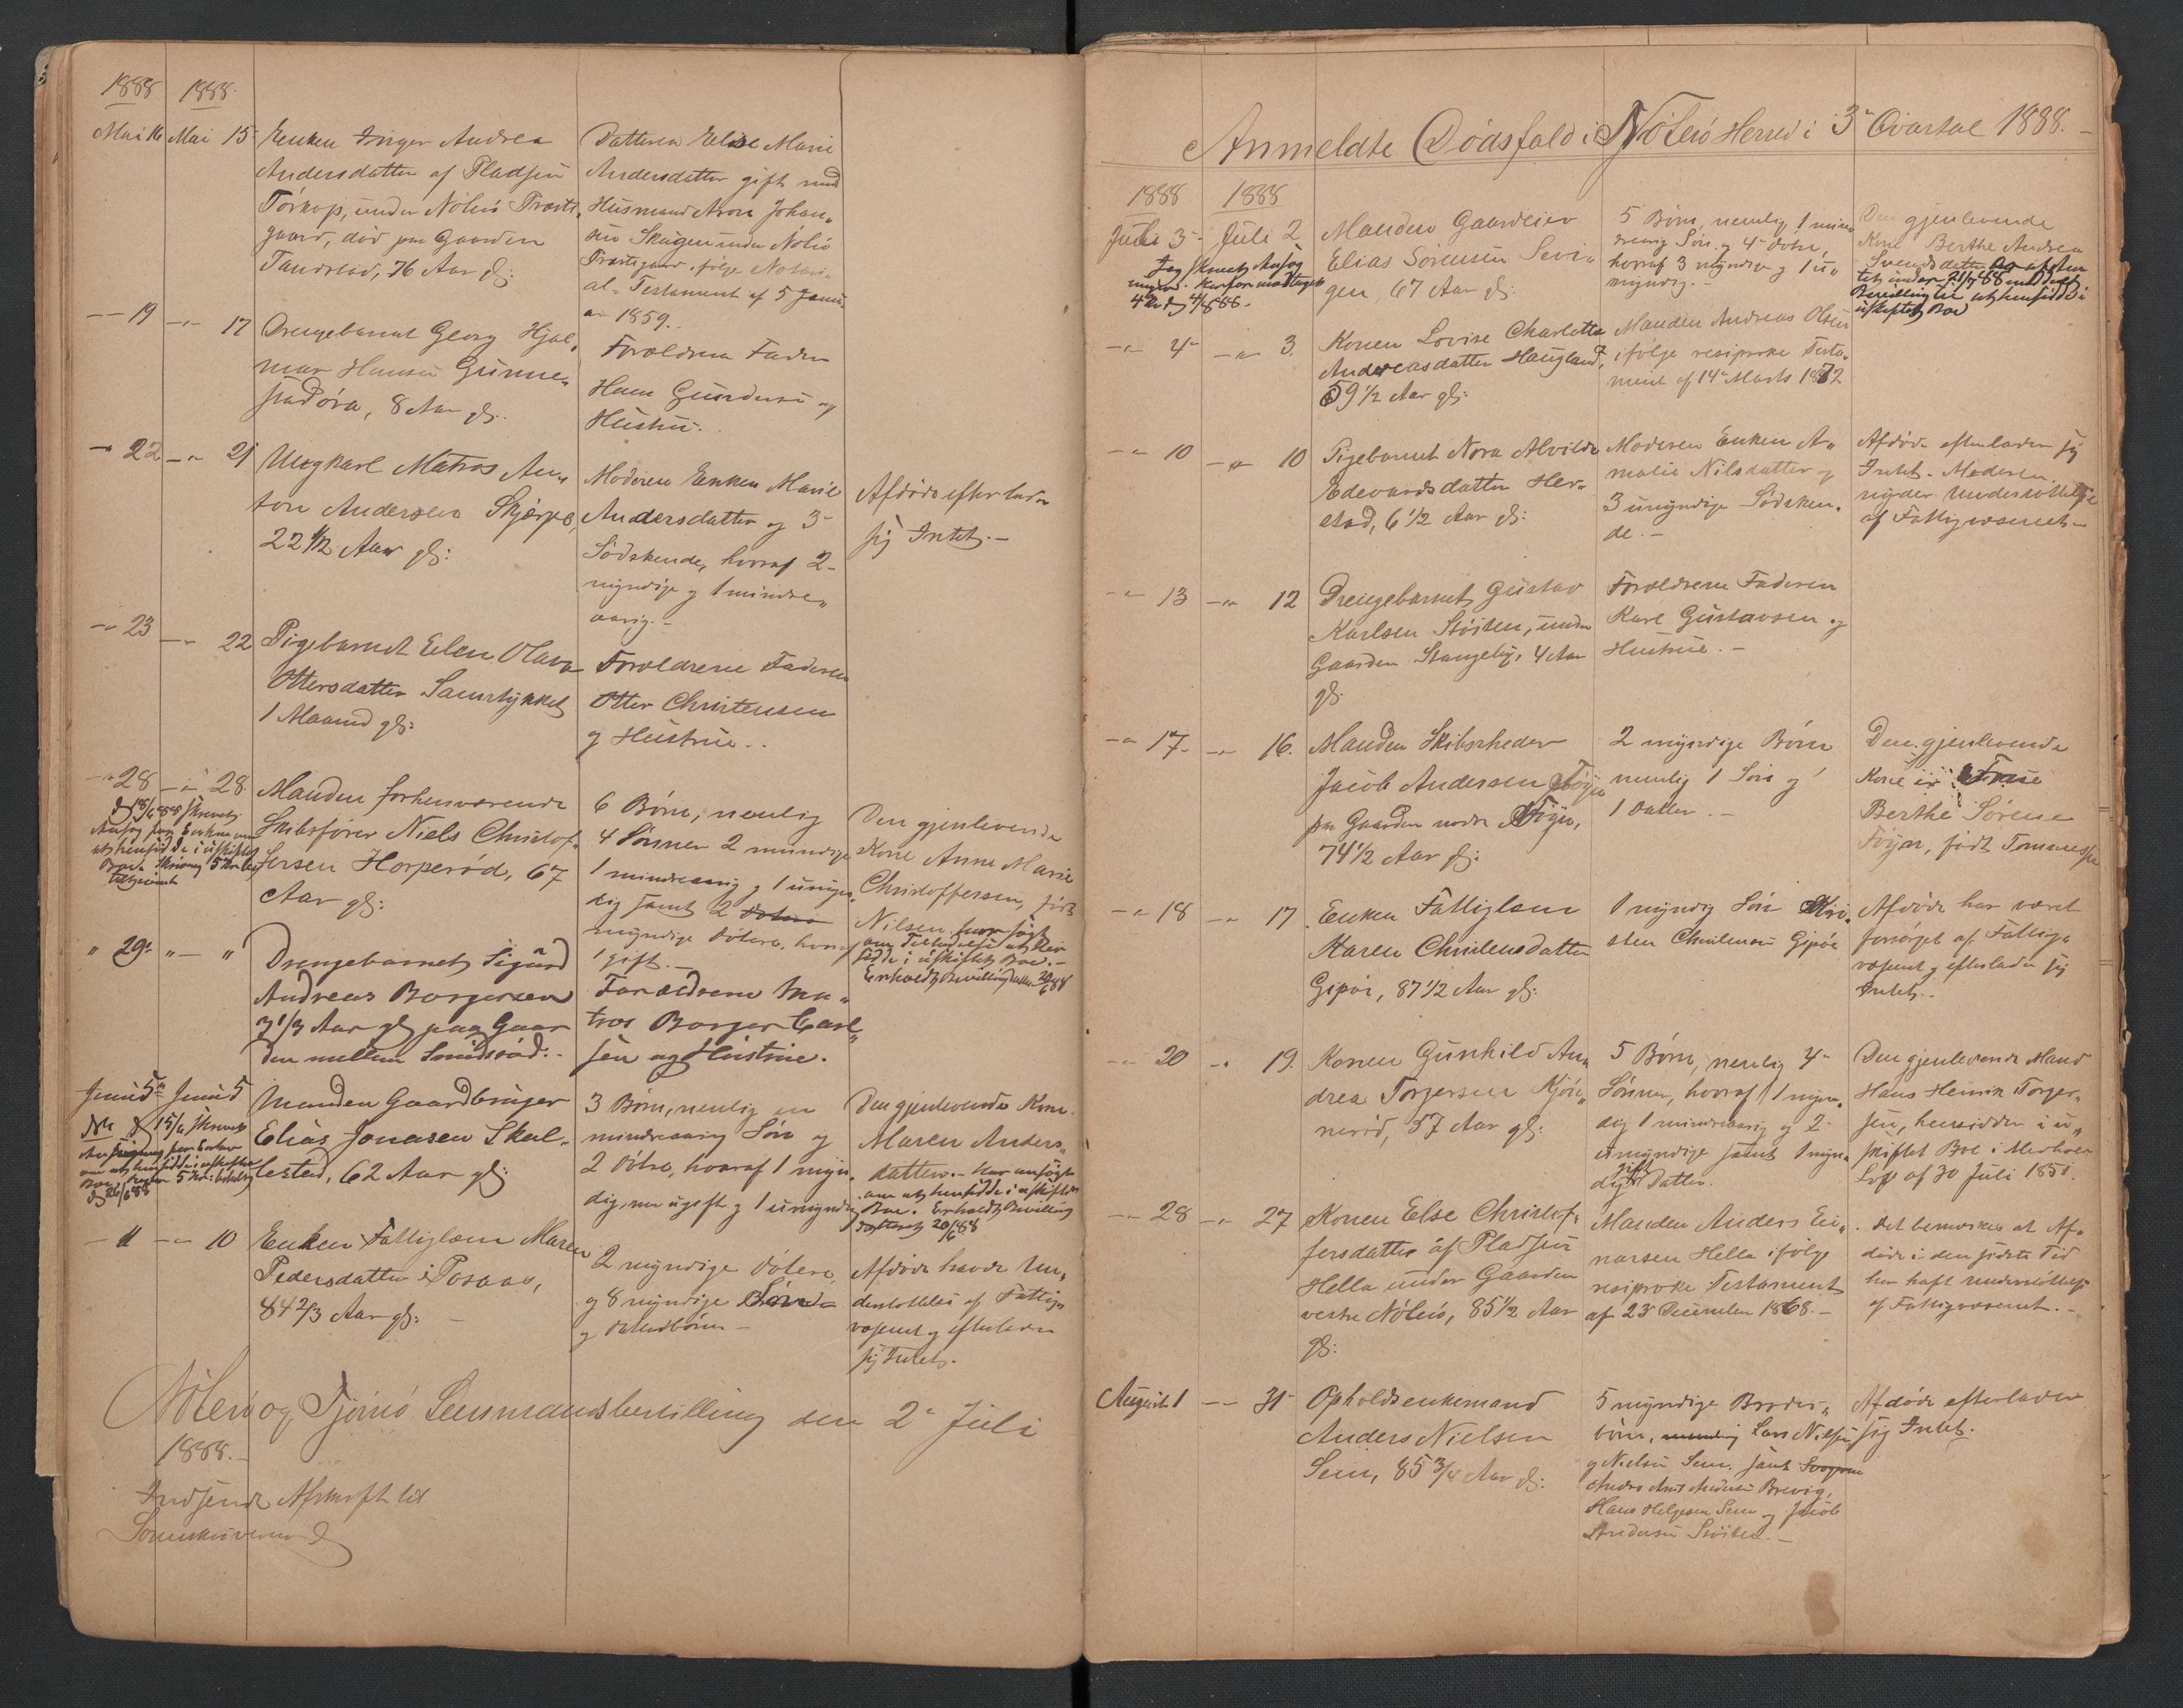 1888 1888.
Mai 16 Mai 15 Enken Inger Andrea
Andersdatter af Pladsen
Torkop, under Nøterø Præste
gaard, død paa Gaarden
Tandstad, 76 Aar gl:
Datteren Elise Marie
Andersdatter gift med
Husmand Aron Johan„
sen Skagen under Nøterø
Præstegaard. følge Notari„
al-Testament af 5 Janu„
ar 1859.
—"— 19 —"— 17 Drengebarnet Georg Hjal„
mar Hansen Gunne„
stadøra, 8 Aar gl:
Forældrene Faderen
Hans Gundersen og
Hustru.
—"— 22 —"— 21 Ungkarl Matros An„
ton Andersen Skjerpe,
22 1/2 Aar gl:
Moderen Enken Marie
Andersdatter og 3
Sødskende, hvoraf 2
myndige og 1 mindre„
aarig.—
Afdøde efterlader
sig Intet.—
—"— 23 —"— 22 Pigebarnet Elen Olava
Ottersdatter Saurstykket
1 Maaned gl:
Forældrene Faderen
Otter Christensen
og Hustrue..
—"— 28 —"— 28. Manden forhenværende
Skibsfører Niels Christof„
fersen Horperød, 67
Aar gl:
6 Børn, nemlig
4 Sønner 2 mundige
1 mindreaarig og 1 umyn„
dig samt 2
myndige Døtere, hvoraf
1 gift.—
Den gjenlevende
Kone Anne Marie
Christoffersen, født
Nilsen, har søgt
om Tilladelse at hen
sidde i uskiftet Boe.—
Erholdt Bevilling 20/6 88
" 29 " — " Drengebarnet Sigurd
Andreas Borgersen
3 1/3 Aar gl paa Gaar
den mellem Smidsrød.—
Forældrene Ma„
tros Borger Carl„
sen og Hustrue.
Juni 5 Juni 5 Manden Gaardbruger
Elias Jonasen Skal„
lestad, 62 Aar gl:
3 Børn, nemlig en
mindreaarig Søn og
2 Døtre, hvoraf 1 myn„
dig, men ugift og 1 umyndig
Den gjenlevende Kone
Maren Anders„
datter.— Har ansøgt
om at hensidde i uskiftet
Boe. Erholdt Bevilling
dateret 20/6 88
— 11 —"— 10 Enken Fattiglem Maren
Pedersdatter i Posaas,
84 2/3 Aar gl:
2 myndige Døtere
og 8 myndige
og Datterbørn —
Afdøde havde Un„
derstøttelse af Fattig„
væsenet og efterlader
sig Intet.
Nøterø og Tjømø Lensmandsbestilling den 2 Juli
1888.—
Indsendt Afskrift til
Sorenskriveren
Anmeldte Dødsfald i Nøterø Herred i 3 Qvartal 1888.—
1888 1888
Juli 3 Juli 2 Manden Gaardeier
Elias Sørensen Sevi„
gen, 67 Aar gl:
5 Børn, nemlig 1 mind
reaarig Søn og 4 Døtre,
hvoraf 3 myndige og 1 u„
myndig.—
Den gjenlevende
Kone Berthe Andrea
Svendsdatter
—"— 4 —"— 3. Konen Lovise Charlotte
Andreasdatter Haugland,
59 1/2 Aar gl:
Manden Andreas Olsen
ifølge resiproke Testa„
ment af 14 Marts 1872
—"— 10 —"— 10 Pigebarnet Nora Alvilde
Edevardsdatter Her„
stad, 6 1/2 Aar gl:
Moderen Enken A„
malie Nilsdatter og
3 umyndige Sødsken„
de.—
Afdøde efterlader sig
Intet. Moderen
nyder Understøttelse
af Fattigvæsenet.—
—"— 13 —"— 12 Drengebarnet Gustav
Karlsen Støiten, under
Gaarden Stangeby, 4 Aar
gl:
Forældrene Faderen
Karl Gustavsen og
Hustrue.—
—"— 17 —"— 16. Manden Skibsrheder
Jacob Andersen Føyn
paa Gaarden nedre Føyn,
74 1/2 Aar gl:
2 myndige Børn
nemlig 1 Søn og
1 Datter.—
Den gjenlevende
Kone er Frue
Berthe Sørene
Føyn, født Tommesen
—"— 18 —"— 17 Enken Fattiglem
Karen Christensdatter
Gipø, 87 1/2 Aar gl:
1 myndig Søn Kri„
sten Christensen Gipø
Afdøde har været
forsørget af Fattig„
væsenet og efterlader sig
Intet.—
—"— 20 —"— 19. Konen Gunhild An„
drea Torgersen Kjøn„
nerød, 57 Aar gl:
5 Børn, nemlig 4
Sønner, hvoraf 1 myn„
dig 1 mindreaarig og 2
umyndige samt 1 myn„
dig gift Datter.
Den gjenlevende Mand
Hans Henrik Torger„
sen, hensidder i u„
skiftet Boe i Medhold
Lov af 30 Juli 1851.
—"— 28 —"— 27 Konen Else Christof„
fersdatter af Pladsen
Hella under Gaarden
vestre Nøterø, 85 1/2 Aar
gl:
Manden Anders Ei„
narsen Hella ifølge
resiproke Testament
af 23 December 1868.—
Det bemærkes at Af„
døde i den sidste Tid
har haft Understøttelse
af Fattigvæsenet.—
August 1 —"— 31 Opholdsenkemand
Anders Nielsen
Sem, 85 3/4 Aar gl:
5 myndige Broder„
børn, nemlig Lars Nilsen
og Nielsen Sem. samt
Anders Andersen Brevig,
Hans Helgesen Sem og Jacob
Andersen Støiten.—
Afdøde efterlader
sig Intet.